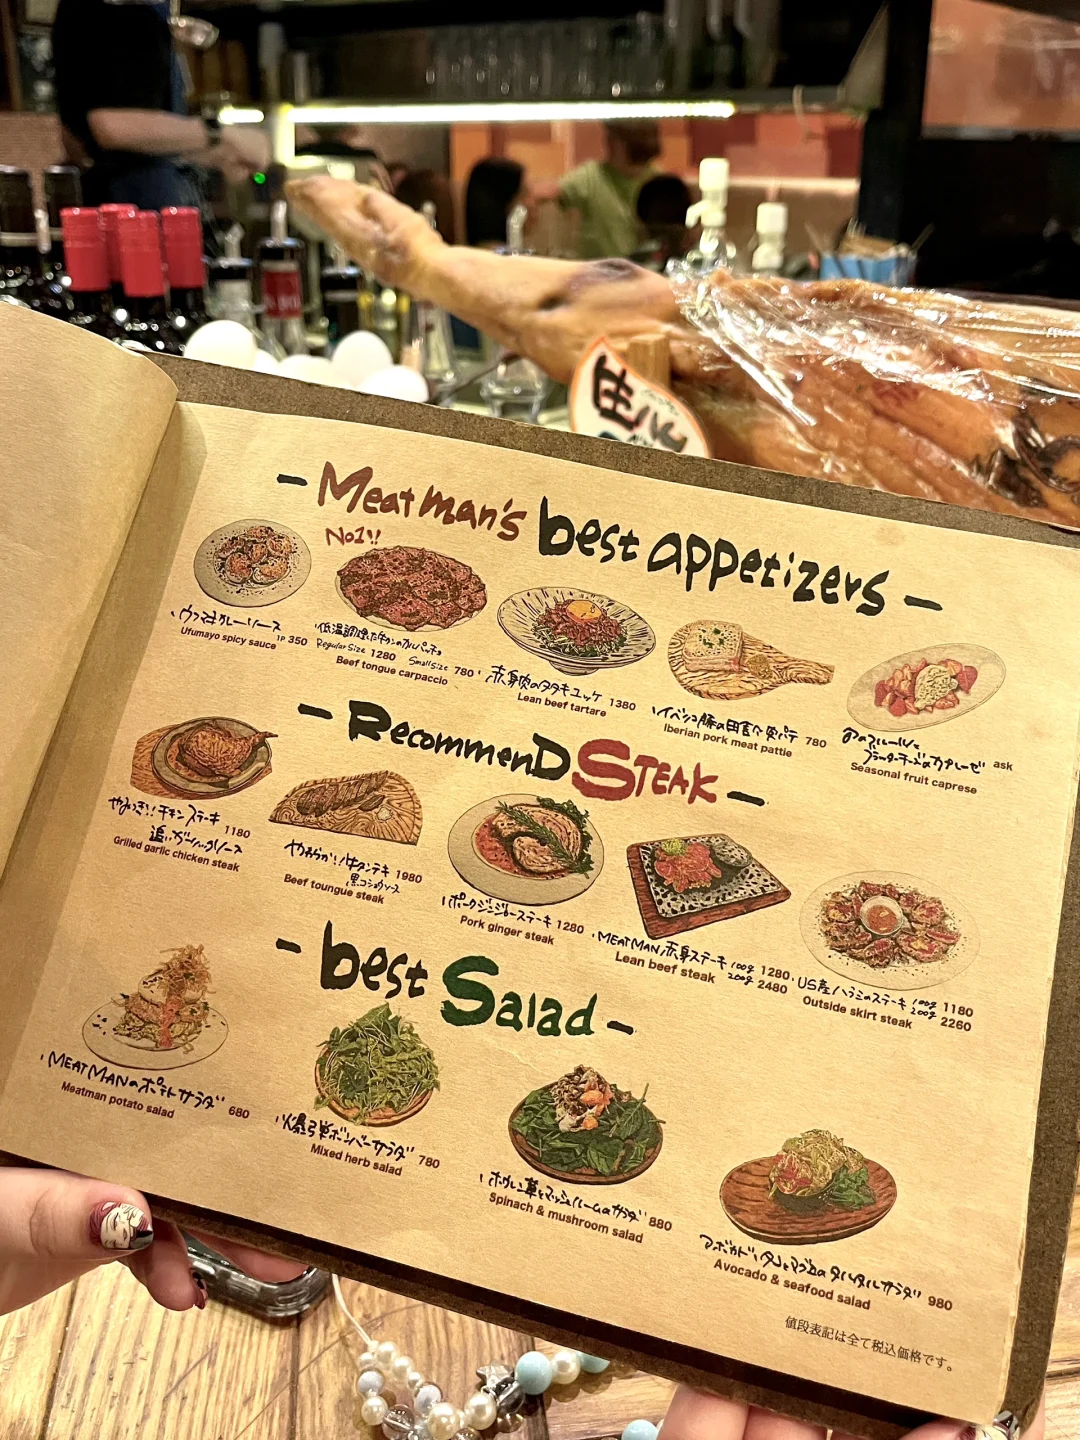 生ハム
- Meatman's best appetizers -
No1!!
ウフマヨカレーソース
Ufumayo spicy sauce
1P 350
低温調理した牛タンのカルパッチョ
Regular size 1280 Small size 780
Beef tongue carpaccio
赤身肉のタタキユッケ 1380
Lean beef tartare
イベリコ豚の田舎風パテ 780
Iberian pork meat pattie
ask
Seasonal fruit caprese
- RecommenD STEAK -
やみつき!!チキンステーキ
追いガーリックソース
1180
Grilled garlic chicken steak
やわらか!牛タンステーキ 1980
黒コショウソース
Beef toungue steak
ポークジンジャーステーキ 1280
Pork ginger steak
MEATMAN赤身ステーキ 100g 1280
Lean beef steak 200g 2480
US産ハラミのステーキ 100g 1180
Outside skirt steak 200g 2260
- best Salad -
MEATMANのポテトサラダ 680
Meatman potato salad
爆弾ボンバーサラダ 780
Mixed herb salad
ホウレン草とマッシュルームのサラダ 880
Spinach & mushroom salad
980
Avocado & seafood salad
値段表記は全て税込価格です。